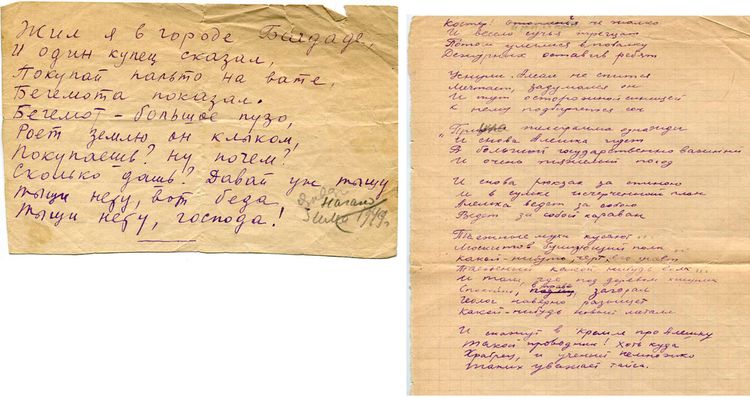 Жил я в городе Багдаде,
И один купец сказал,
Покупай пальто на вате,
Бегемота показал.
Бегемот – большое пузо,
Роет землю он клыком!
Покупаешь? Ну почем?
Сколько дашь? Давай уж тыщу
Тыщи нету, вот беда,
Тыщи нету, господа!
Зима 1949 г
Костер! не жалко
И весело сучья трещат
Потом улеглися вповалку
Дежурных оставив ребят
Уснули. Алеше не спится
Мечтает, задумался он
И тут осторожной
К нему подбирается сон
телеграмма однажды
И снова Алешка идет
В большой государственно важный
И очень тяжелый поход
И снова рюкзак за спиною
И в сумке исчерченный план
Алешка ведет за собою
Ведет за собой караван
Таежные мухи кусают..
Москитов бушующий полк
Какой-нибудь, черт его знает
Таежный какой нибудь волк...
И там, где под деревом хищник
Спокойно, в траве загорал
Геолог наверно разыщет
Какой-нибудь новый металл
И скажут в Кремле про Алешку
Такой проводник! Хоть куда
Храбрец, и ученый немножко
Таких уважает тайга.